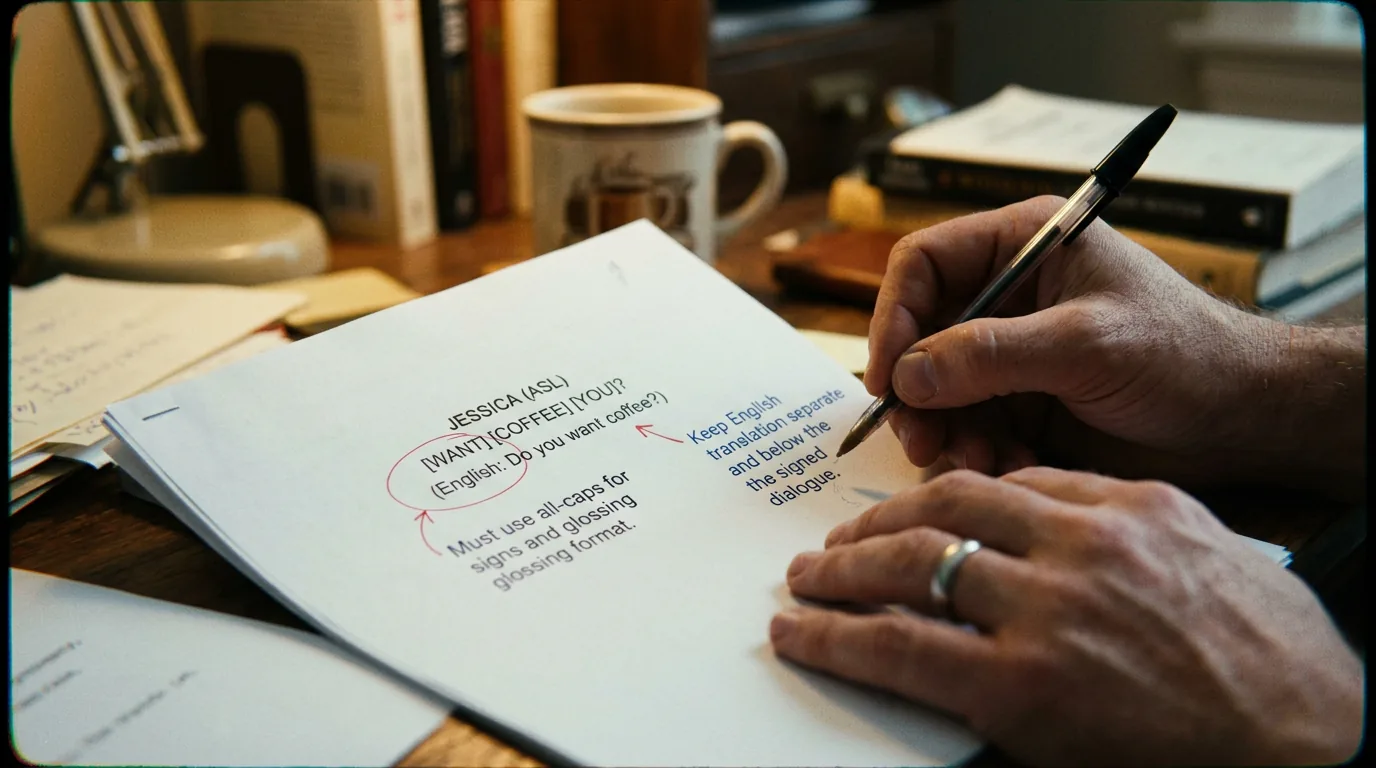 JESSICA (ASL)
[WANT] [COFFEE] [YOU]?
(English: Do you want coffee?)
Keep English
translation separate
and below the
the signed
dialogue.
Must use all-caps for
signs and glossing
glossing format.